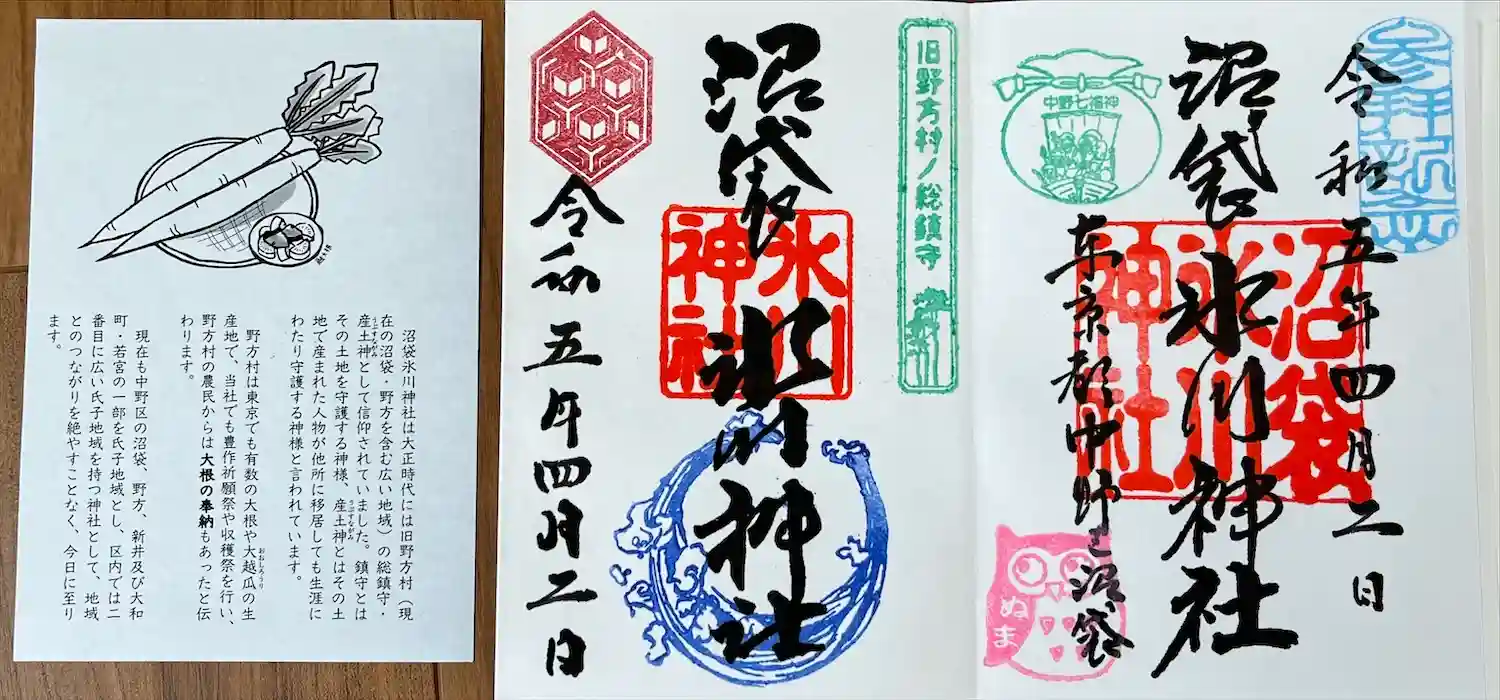 沼袋氷川神社は大正時代には旧野方村（現
在の沼袋・野方を含む広い地域）の総鎮守・
産土神として信仰されていました。鎮守とは
うぶすながみ
その土地を守護する神様、産土神とはその土
うぶすながみ
地で産まれた人物が他所に移居しても生涯に
わたり守護する神様と言われています。
野方村は東京でも有数の大根や大越瓜の生
おおしろうり
産地で、当社でも豊作祈願祭や収穫祭を行い、
野方村の農民からは大根の奉納もあったと伝
わります。
現在も中野区の沼袋、野方、新井及び大和
町・若宮の一部を氏子地域とし、区内では二
番目に広い氏子地域を持つ神社として、地域
とのつながりを絶やすことなく、今日に至り
ます。
旧野方村ノ総鎮守
沼袋氷川神社
氷川神社
令和五年四月二日
参拝記念
令和五年四月二日
沼袋氷川神社
沼袋氷川神社
東京都中野区沼袋
中野七福神
ぬま